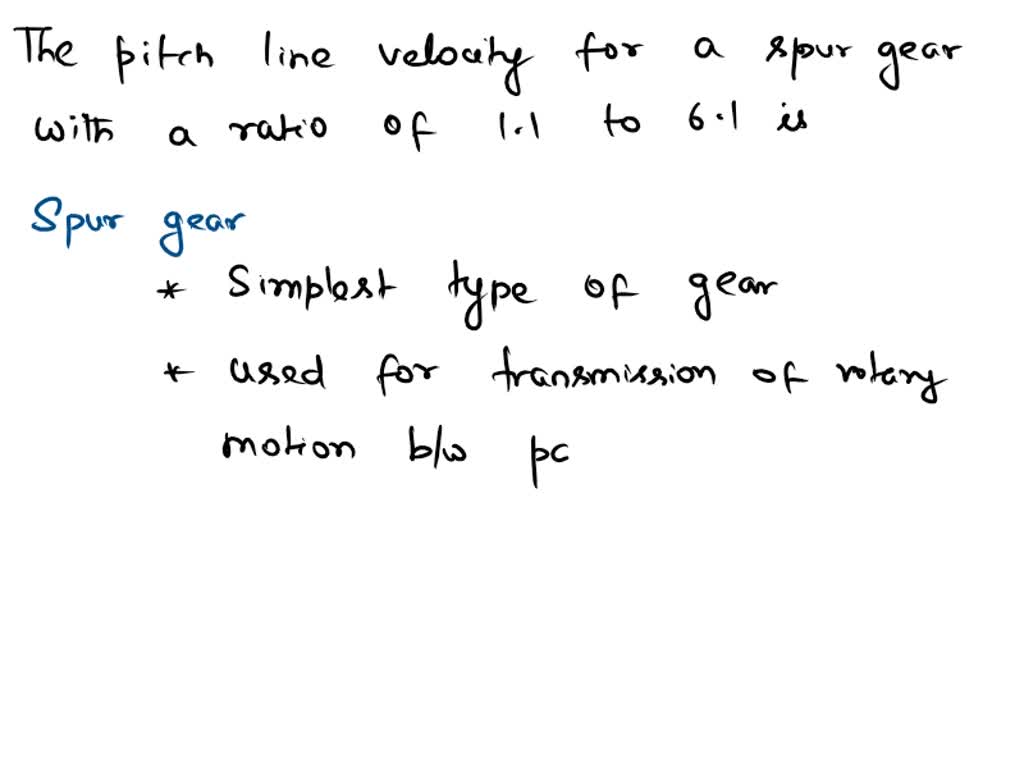 The pitch line velocity for a spur gear
with a ratio of 1.1 to 6.1 is
Spur gear
* Simplest type of gear
* used for transmission of rotary
motion b/w pc